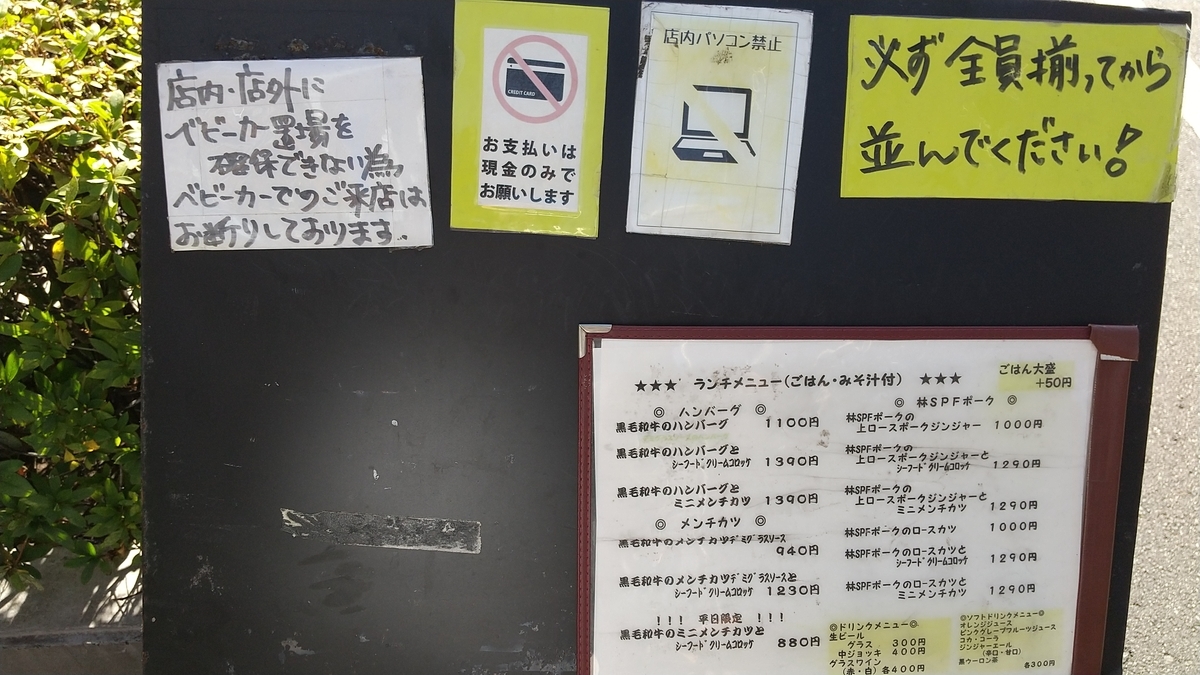 店内・店外に
ベビーカー置場を
確保できない為
ベビーカーでのご来店は
お断りしております。
CREDIT CARD
お支払いは
現金のみで
お願いします
店内パソコン禁止
必ず全員揃ってから
並んでください!
★★★ ランチメニュー(ごはん・みそ汁付) ★★★
ごはん大盛
+50円
◎ ハンバーグ ◎
黒毛和牛のハンバーグ 1100円
黒毛和牛のハンバーグと
シーフードクリームコロッケ 1390円
黒毛和牛のハンバーグと
ミニメンチカツ 1390円
◎ メンチカツ ◎
黒毛和牛のメンチカツデミグラスソース
940円
黒毛和牛のメンチカツデミグラスソースと
シーフードクリームコロッケ 1230円
!!! 平日限定 !!!
黒毛和牛のミニメンチカツと
シーフードクリームコロッケ 880円
◎ 林SPFポーク ◎
林SPFポークの
上ロースポークジンジャー 1000円
林SPFポークの
上ロースポークジンジャーと
シーフードクリームコロッケ 1290円
林SPFポークの
上ロースポークジンジャーと
ミニメンチカツ 1290円
林SPFポークのロースカツ 1000円
林SPFポークのロースカツと
シーフードクリームコロッケ 1290円
林SPFポークのロースカツと
ミニメンチカツ 1290円
◎ドリンクメニュー◎
生ビール
グラス 300円
中ジョッキ 400円
グラスワイン
(赤・白)各400円
◎ソフトドリンクメニュー◎
オレンジジュース
ピンクグレープフルーツジュース
コカ・コーラ
ジンジャーエール
(辛口・甘口)
黒ウーロン茶
各300円